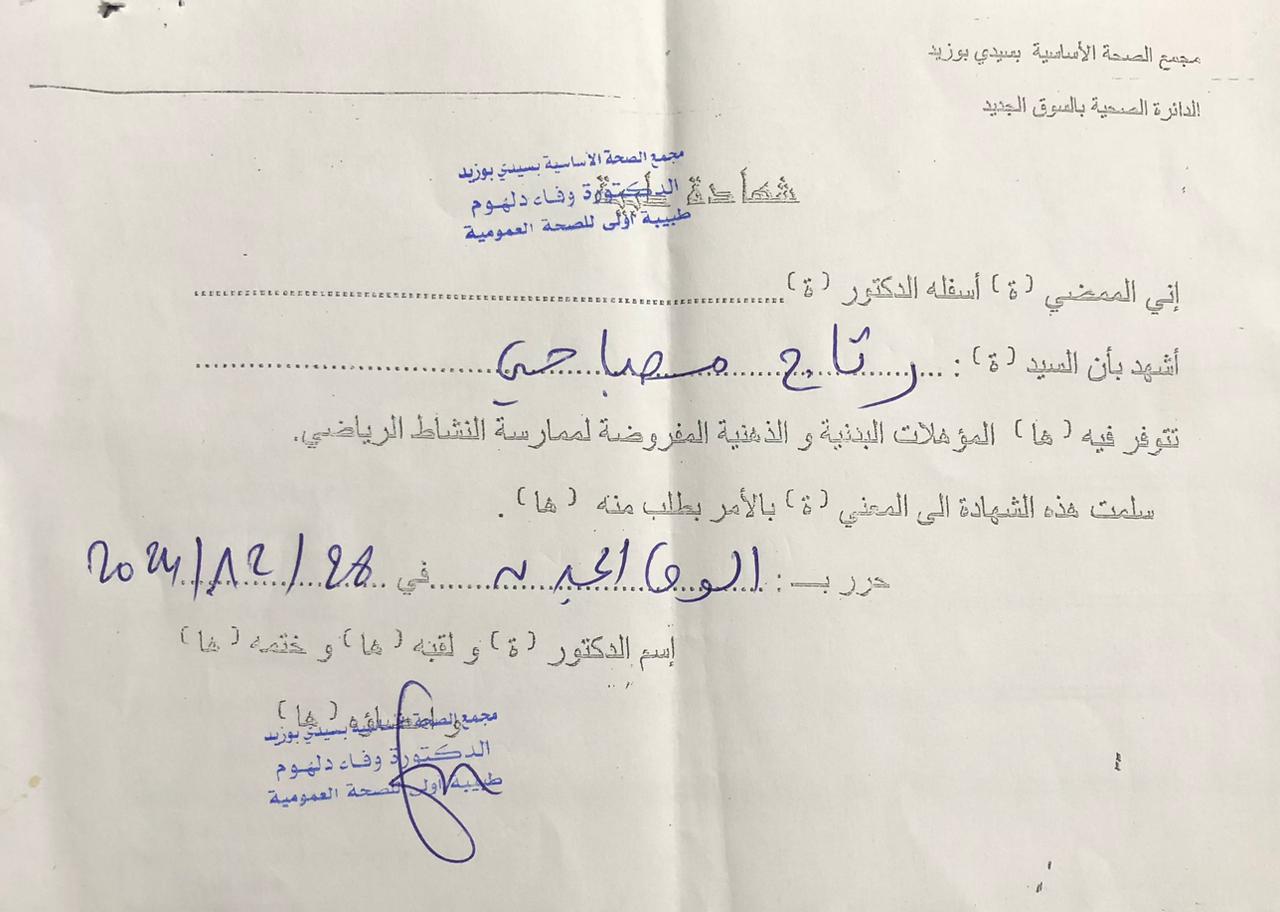 مجمع الصحة الأساسية بسيدي بوزيد
الدائرة الصحية بالسوق الجديد
مجمع الصحة الأساسية بسيدي بوزيد
شهادة طبية
الدكتورة وفاء دلهوم
طبيبة أولى للصحة العمومية
إني الممضي (ة) أسفله الدكتور (ة)
أشهد بأن السيد (ة) : رتاج مصباحي
تتوفر فيه (ها) المؤهلات البدنية و الذهنية المفروضة لممارسة النشاط الرياضي.
سلمت هذه الشهادة الى المعني (ة) بالأمر بطلب منه (ها) .
حرر بـ : السوق الجديد في 28/12/2024
إسم الدكتور (ة) و لقبه (ها) و ختمه (ها)
و امضاؤه (ها)
مجمع الصحة الأساسية بسيدي بوزيد
الدكتورة وفاء دلهوم
طبيبة أولى للصحة العمومية